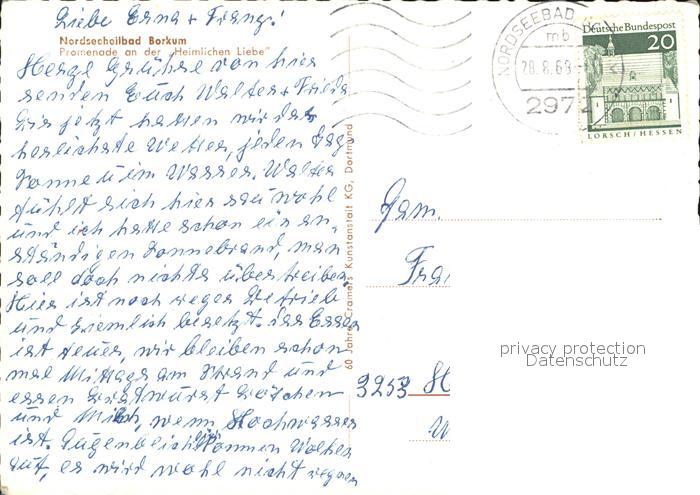 Liebe Erna + Franz!
Nordseeheilbad Borkum
Promenade an der "Heimlichen Liebe"
Herzl Grühse von hier
senden Euch Walter + Frieda
Bis jetzt hatten wir das
herlichste Wetter, jeden Tag
Sonne u im Wasser. Walter
fühlt sich hier sau wohl
und ich hatte schon ein an-
ständigen Sonnenbrand, man
soll doch nichts übertreiben.
Hier ist noch reges Betrieb
und ziemlich besetzt. das Essen
ist teuer, wir bleiben schon
mal Mittags am Strand und
essen Bratwurst Brötchen
und Milch, wenn Hochwasser
ist. Augenblich kommen Wolken
auf, es wird wohl nicht regnen
60 Jahre Cramers Kunstanstalt KG, Dortmund
NORDSEEBAD
mb
28.8.69
2972
Deutsche Bundespost
20
LORSCH/HESSEN
Fam.
Fra
3253 H
W
privacy protection
Datenschutz